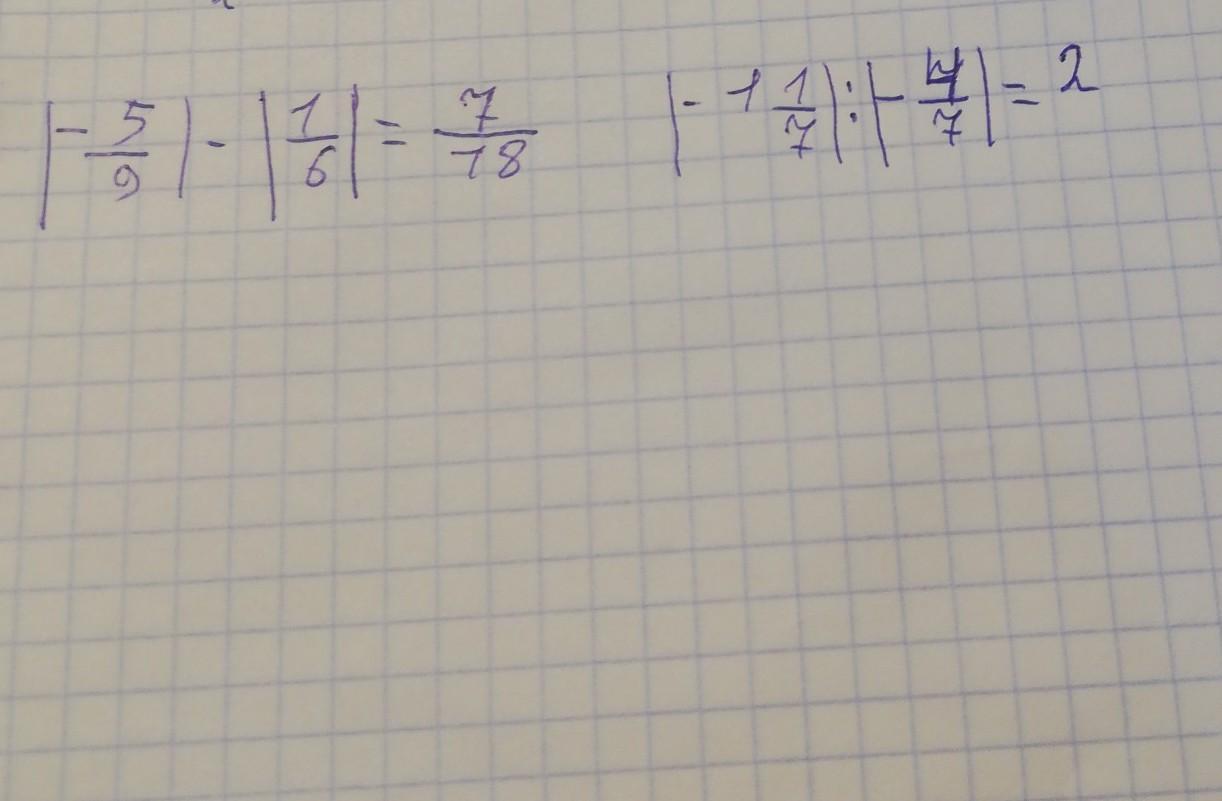 |-5/9| - |1/6| = 7/18    |-1 1/7| : |-4/7| = 2